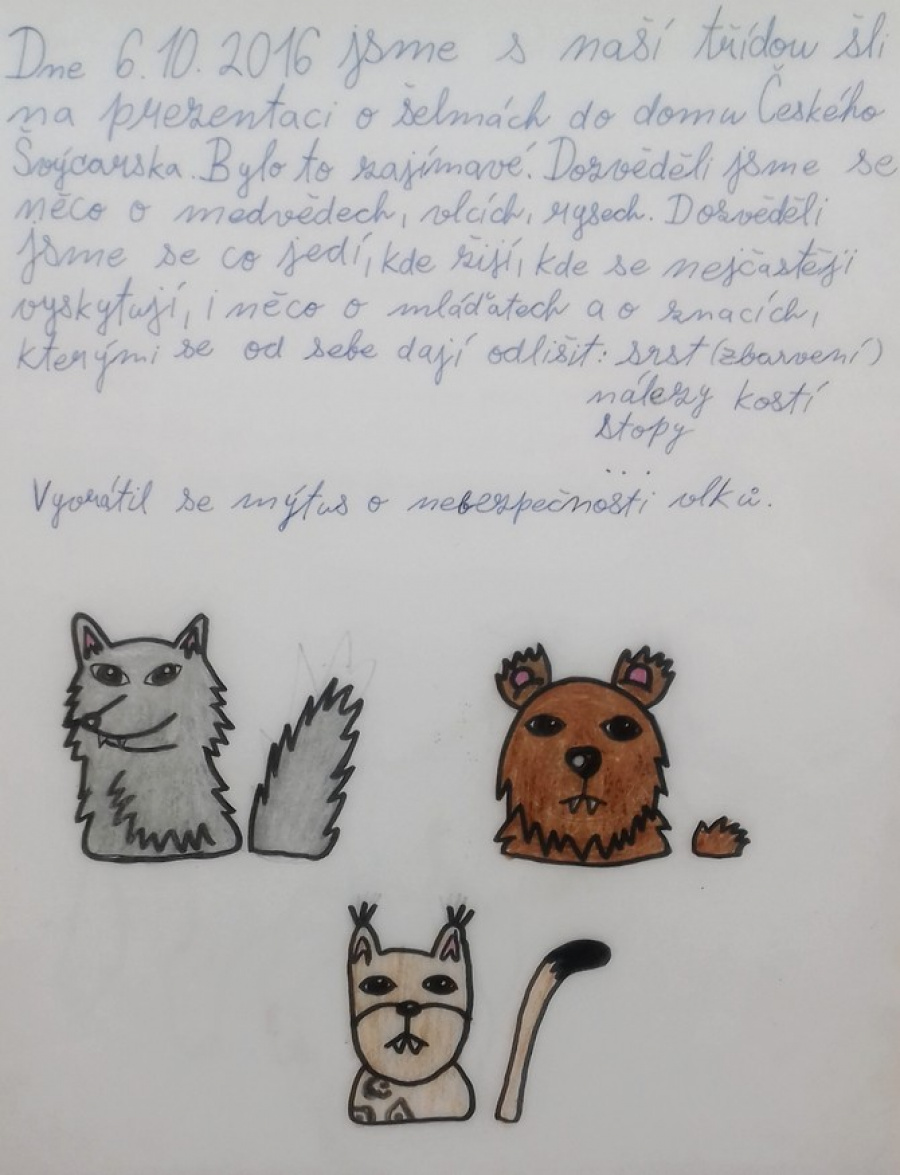 Dne 6.10.2016 jsme s naší třídou šli
na prezentaci o šelmách do domu Českého
Švýcarska. Bylo to zajímavé. Dozvěděli jsme se
něco o medvědech, vlcích, rysech. Dozvěděli
jsme se co jedí, kde žijí, kde se nejčastěji
vyskytují, i něco o mláďatech a o znacích,
kterými se od sebe dají odlišit: srst (zbarvení)
nálezy kostí
stopy
...
Vyvrátil se mýtus o nebezpečnosti vlků.